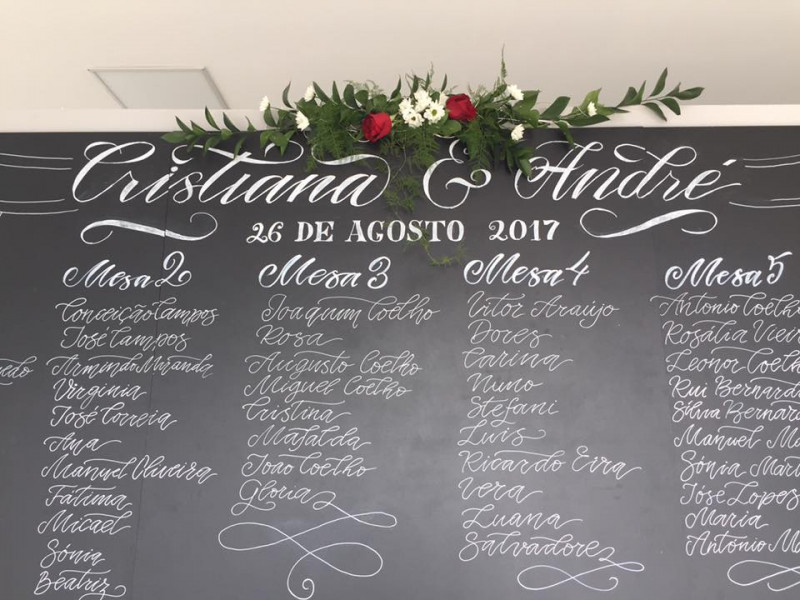 Cristiana & André
26 DE AGOSTO 2017
Mesa 2
Conceição Campos
José Campos
Armindo Miranda
Virginia
José Correia
Ana
Manuel Oliveira
Fátima
Micael
Sónia
Beatriz
Mesa 3
Joaquim Coelho
Rosa
Augusto Coelho
Miguel Coelho
Cristina
Mafalda
João Coelho
Gloria
Mesa 4
Vitor Araújo
Dores
Carina
Nuno
Stefani
Luis
Ricardo Eira
Vera
Luana
Salvador
Mesa 5
Antonio Coelho
Rosália Viei
Leonor Coelh
Rui Bernardo
Silvia Bernar
Manuel M
Sónia Mart
José Lopes
Maria
António M